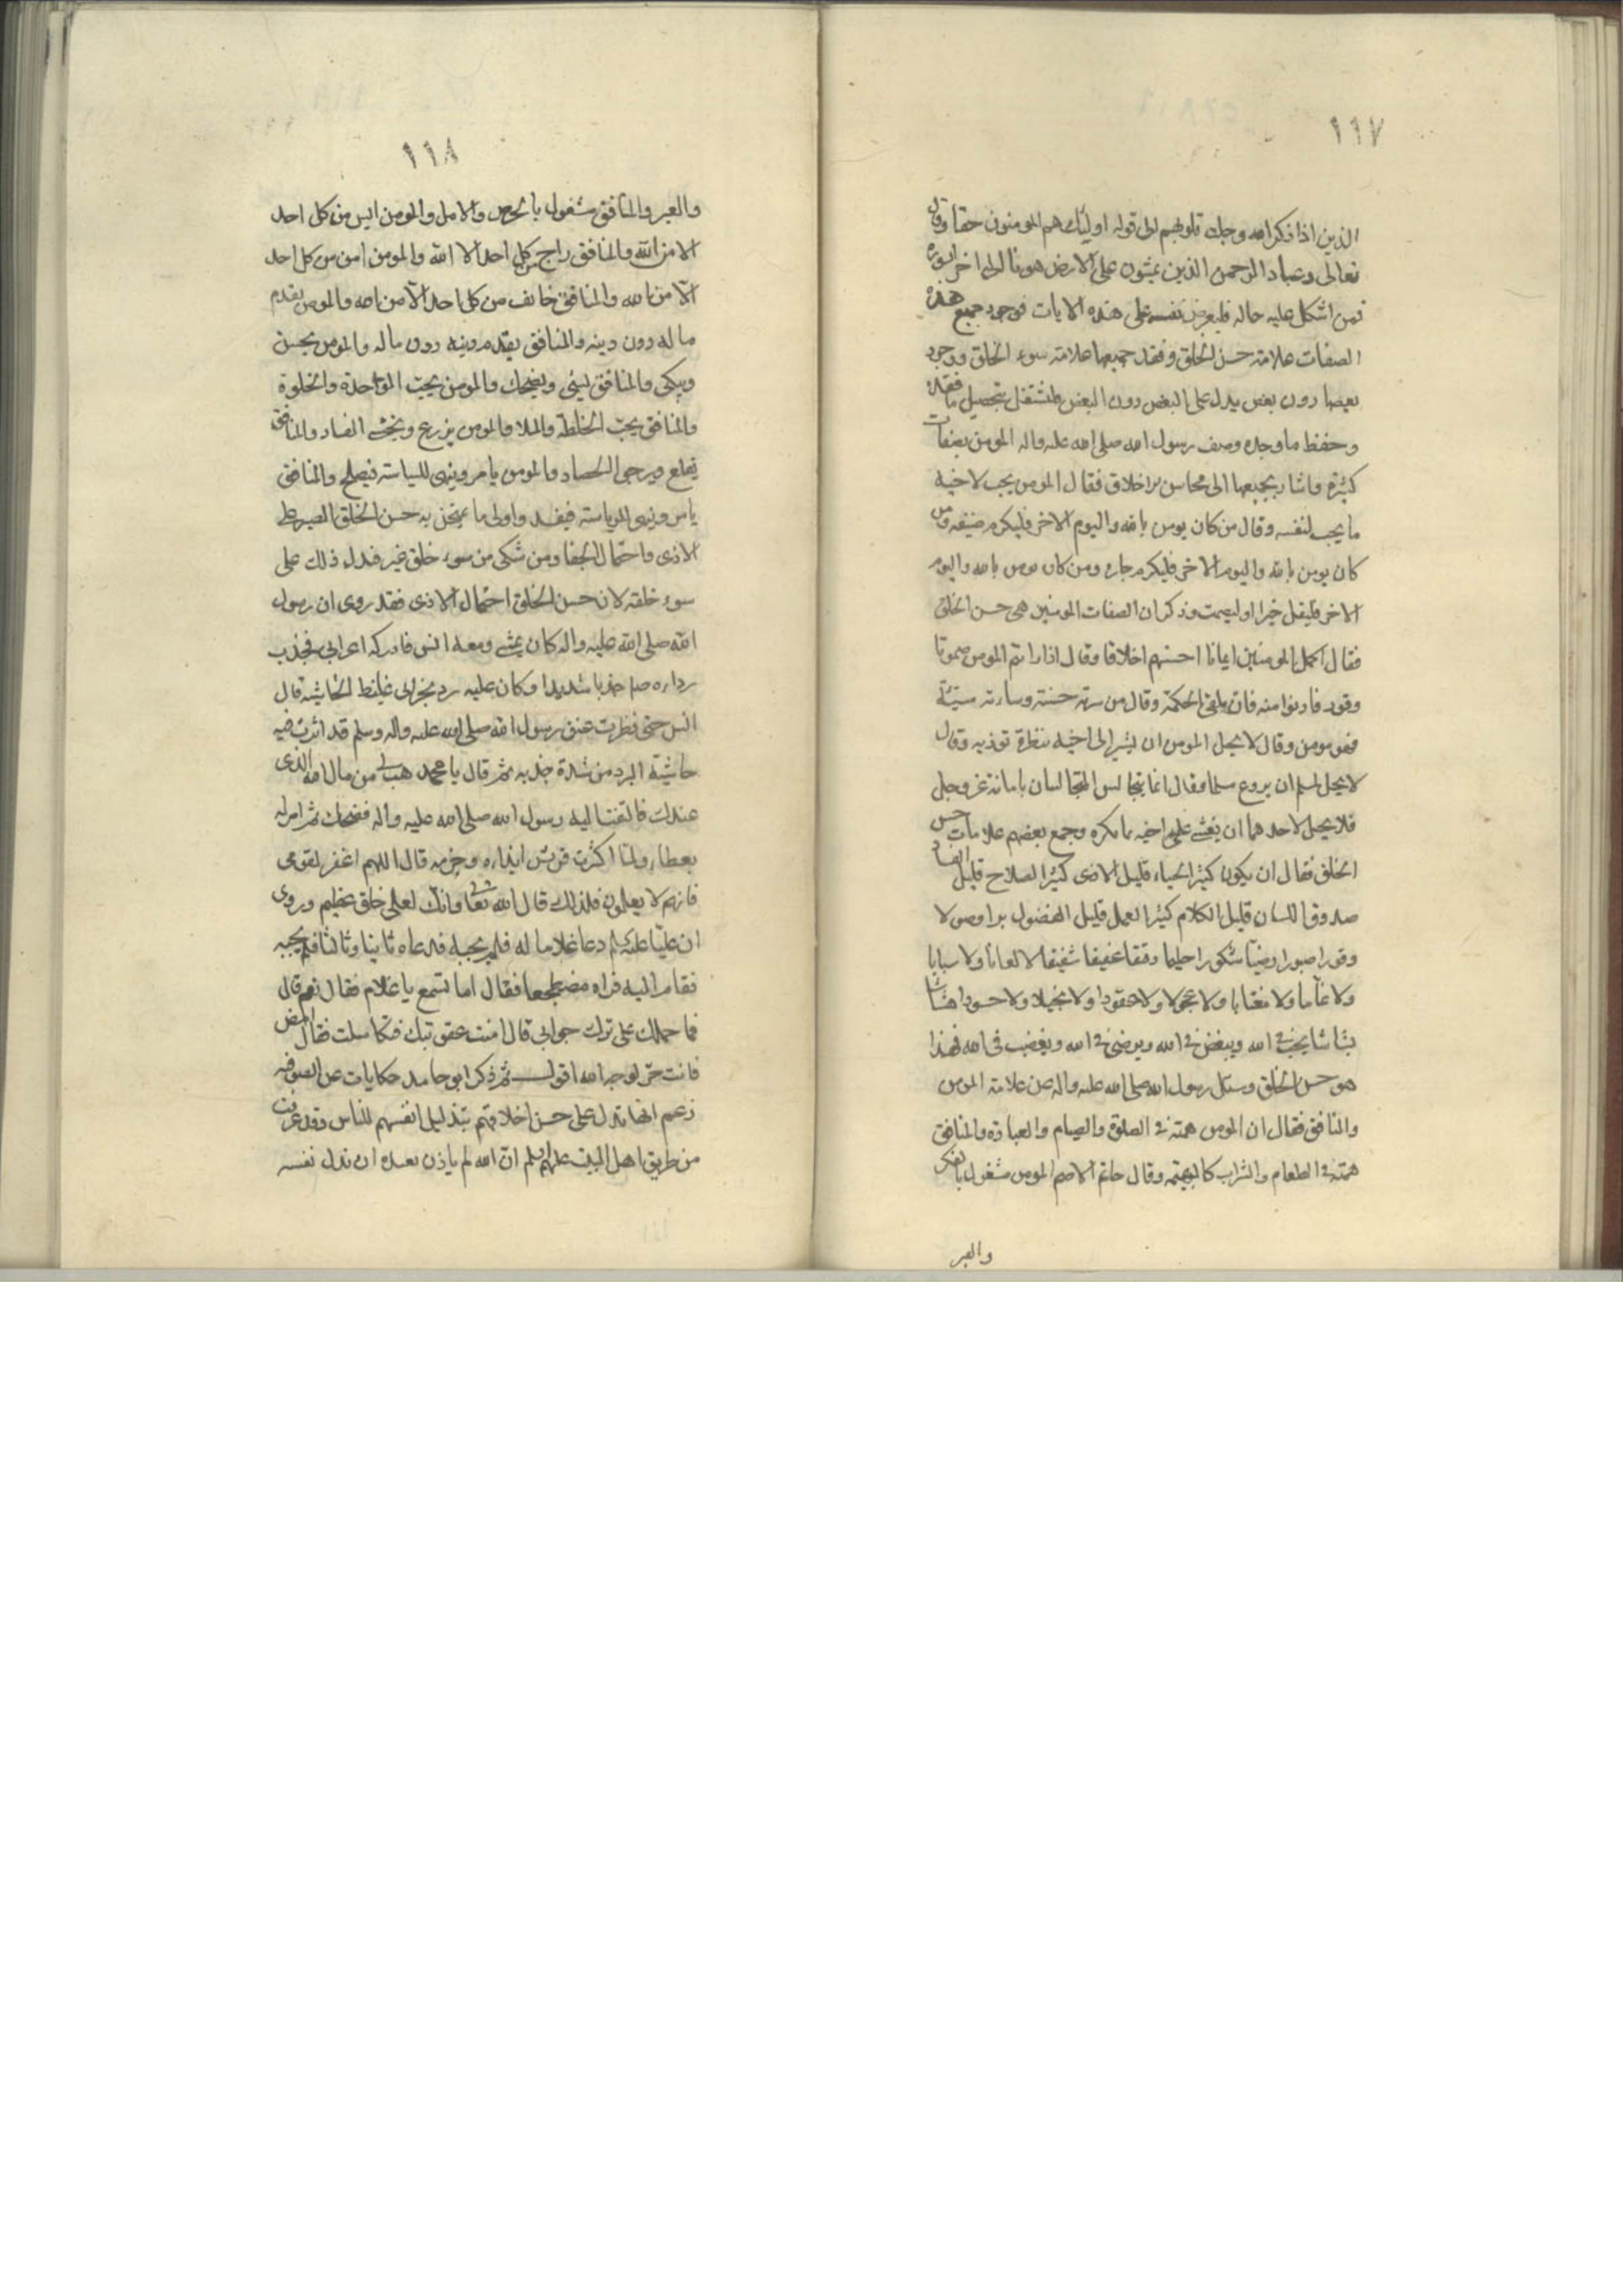 ١١٧
الذين اذا ذكر الله وجلت قلوبهم الى قوله اولئك هم المومنون حقا وقال
تعالى وعباد الرحمن الذين يمشون على الارض هونا الى اخر السورة
فمن اشكل عليه حاله فليعرض نفسه على هذه الايات فوجود جميع هذه
الصفات علامة حسن الخلق وفقد جميعها علامة سوء الخلق ووجود
بعضها دون بعض يدل على البعض دون البعض فليشتغل بتحصيل ما فقده
وحفظ ما وجده وصف رسول الله صلى الله عليه واله المومن بصفات
كثيرة واشار بجميعها الى محاسن الاخلاق فقال المومن يحب لاخيه
ما يحب لنفسه وقال من كان يومن بالله واليوم الاخر فليكرم ضيفه ومن
كان يومن بالله واليوم الاخر فليكرم جاره ومن كان يومن بالله واليوم
الاخر فليقل خيرا او ليصمت وذكر ان الصفات المومنين هى حسن الخلق
فقال اكمل المومنين ايمانا احسنهم اخلاقا وقال اذا رايتم المومن صموتا
وقور فادنوا منه فانه يلقى الحكمة وقال من سرته حسنة وساءته سيئة
فهو مومن وقال لا يحل المومن ان يشير الى اخيه بنظرة توذيه وقال
لا يحل لمسلم ان يروع مسلما وقال انما يتجالس المتجالسان بامانة عز وجل
فلا يحل لاحدهما ان يفشى على اخيه ما يكره وجمع بعضهم علامات حسن
الخلق فقال ان يكون كثير الحياء قليل الاذى كثير الصلاح قليل الفساد
صدوق اللسان قليل الكلام كثير العمل قليل الفضول برا وصولا
وقورا صبورا رضيا شكورا حليما رفيقا عفيفا شفيقا لا لعانا ولا سبابا
ولا نماما ولا مغتابا ولا عجولا ولا حقودا ولا بخيلا ولا حسودا هشاشا
بشاشا يحب فى الله ويبغض فى الله ويرضى فى الله ويغضب فى الله فهذا
هو حسن الخلق وسئل رسول الله صلى الله عليه واله عن علامة المومن
والمنافق فقال ان المومن همته فى الصلوة والصيام والعبادة والمنافق
همته فى الطعام والشراب كالبهيمة وقال حاتم الاصم المومن مشغول بالفكر
والعبر
١١٨
والعبر والمنافق مشغول بالحرص والامل والمومن ايس من كل احد
الا من الله والمنافق راج من كل احد الا الله والمومن امن من كل احد
الا من الله والمنافق خايف من كل احد الا من الله والمومن يقدم
ماله دون دينه والمنافق يقدم دينه دون ماله والمومن يحسن
ويبكى والمنافق يسئ ويضحك والمومن يحب الوحدة والخلوة
والمنافق يحب الخلطة والملا والمومن يزرع ويخشى الفساد والمنافق
يقلع ويرجى الحصاد والمومن يامر وينهى للسياسة فيصلح والمنافق
يامر وينهى للرياسة فيفسد واولى ما يمتحن به حسن الخلق الصبر على
الاذى واحتمال الجفا ومن شكى من سوء خلق غير فدل ذلك على
سوء خلقه لان حسن الخلق احتمال الاذى فقد روى ان رسول
الله صلى الله عليه واله كان يمشى ومعه انس فادركه اعرابى فجذب
رداءه جذبا شديدا وكان عليه برد نجرانى غليظ الحاشية قال
انس حتى نظرت عنق رسول الله صلى الله عليه واله وسلم قد اثرت فيه
حاشية البرد من شدة جذبه ثم قال يا محمد هب لى من مال الله الذى
عندك فالتفت اليه رسول الله صلى الله عليه واله فضحك ثم امر له
بعطاء ولما اكثرت قريش ايذاءه وضربه قال اللهم اغفر لقومى
فانهم لا يعلمون فلذلك قال الله تعالى وانك لعلى خلق عظيم وروى
ان عليا عليه السلم دعا غلاما له فلم يجبه فدعاه ثانيا وثالثا فلم يجبه
فقام اليه فراه مضطجعا فقال اما تسمع يا غلام فقال نعم قال
فما حملك على ترك جوابى قال امنت عقوبتك فتكاسلت فقال امض
فانت حر لوجه الله اقول ثم ذكر ابو حامد حكايات عن الصوفيه
زعم انها تدل على حسن اخلاقهم بتذليل انفسهم للناس وقد عرفت
من طريق اهل البيت عليهم السلم ان الله لم ياذن لعبده ان يذل نفسه